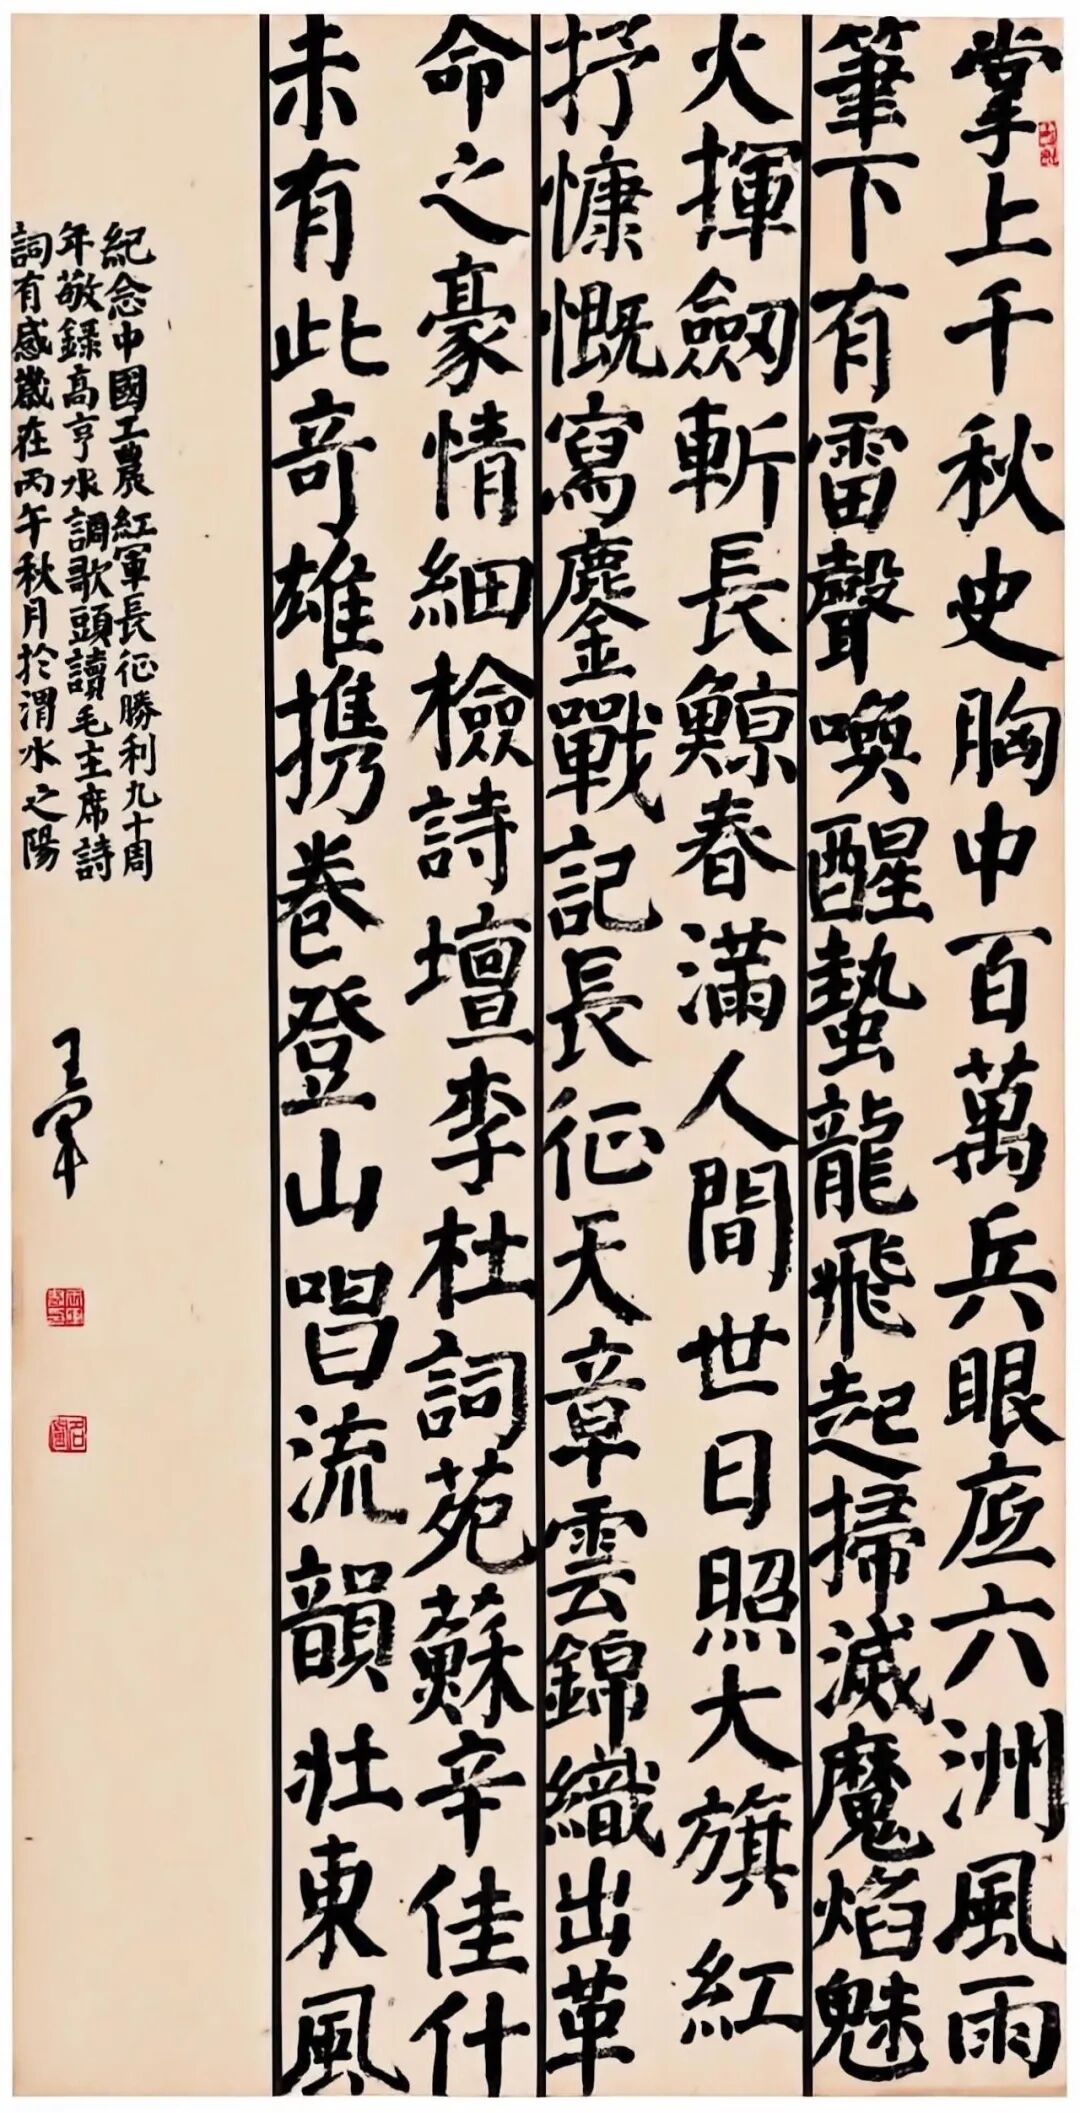 掌上千秋史胸中百萬兵眼底六洲風雨
筆下有雷聲喚醒蟄龍飛起掃滅魔焰魅
火揮劔斬長鯨春滿人間世日照大旗紅
抒慷慨寫鏖戰記長征天章雲錦織出革
命之豪情細檢詩壇李杜詞苑蘇辛佳什
未有此奇雄携卷登山唱流韻壯東風
紀念中國工農紅軍長征勝利九十周
年敬録高亨水調歌頭讀毛主席詩
詞有感歲在丙午秋月於渭水之陽
王軍